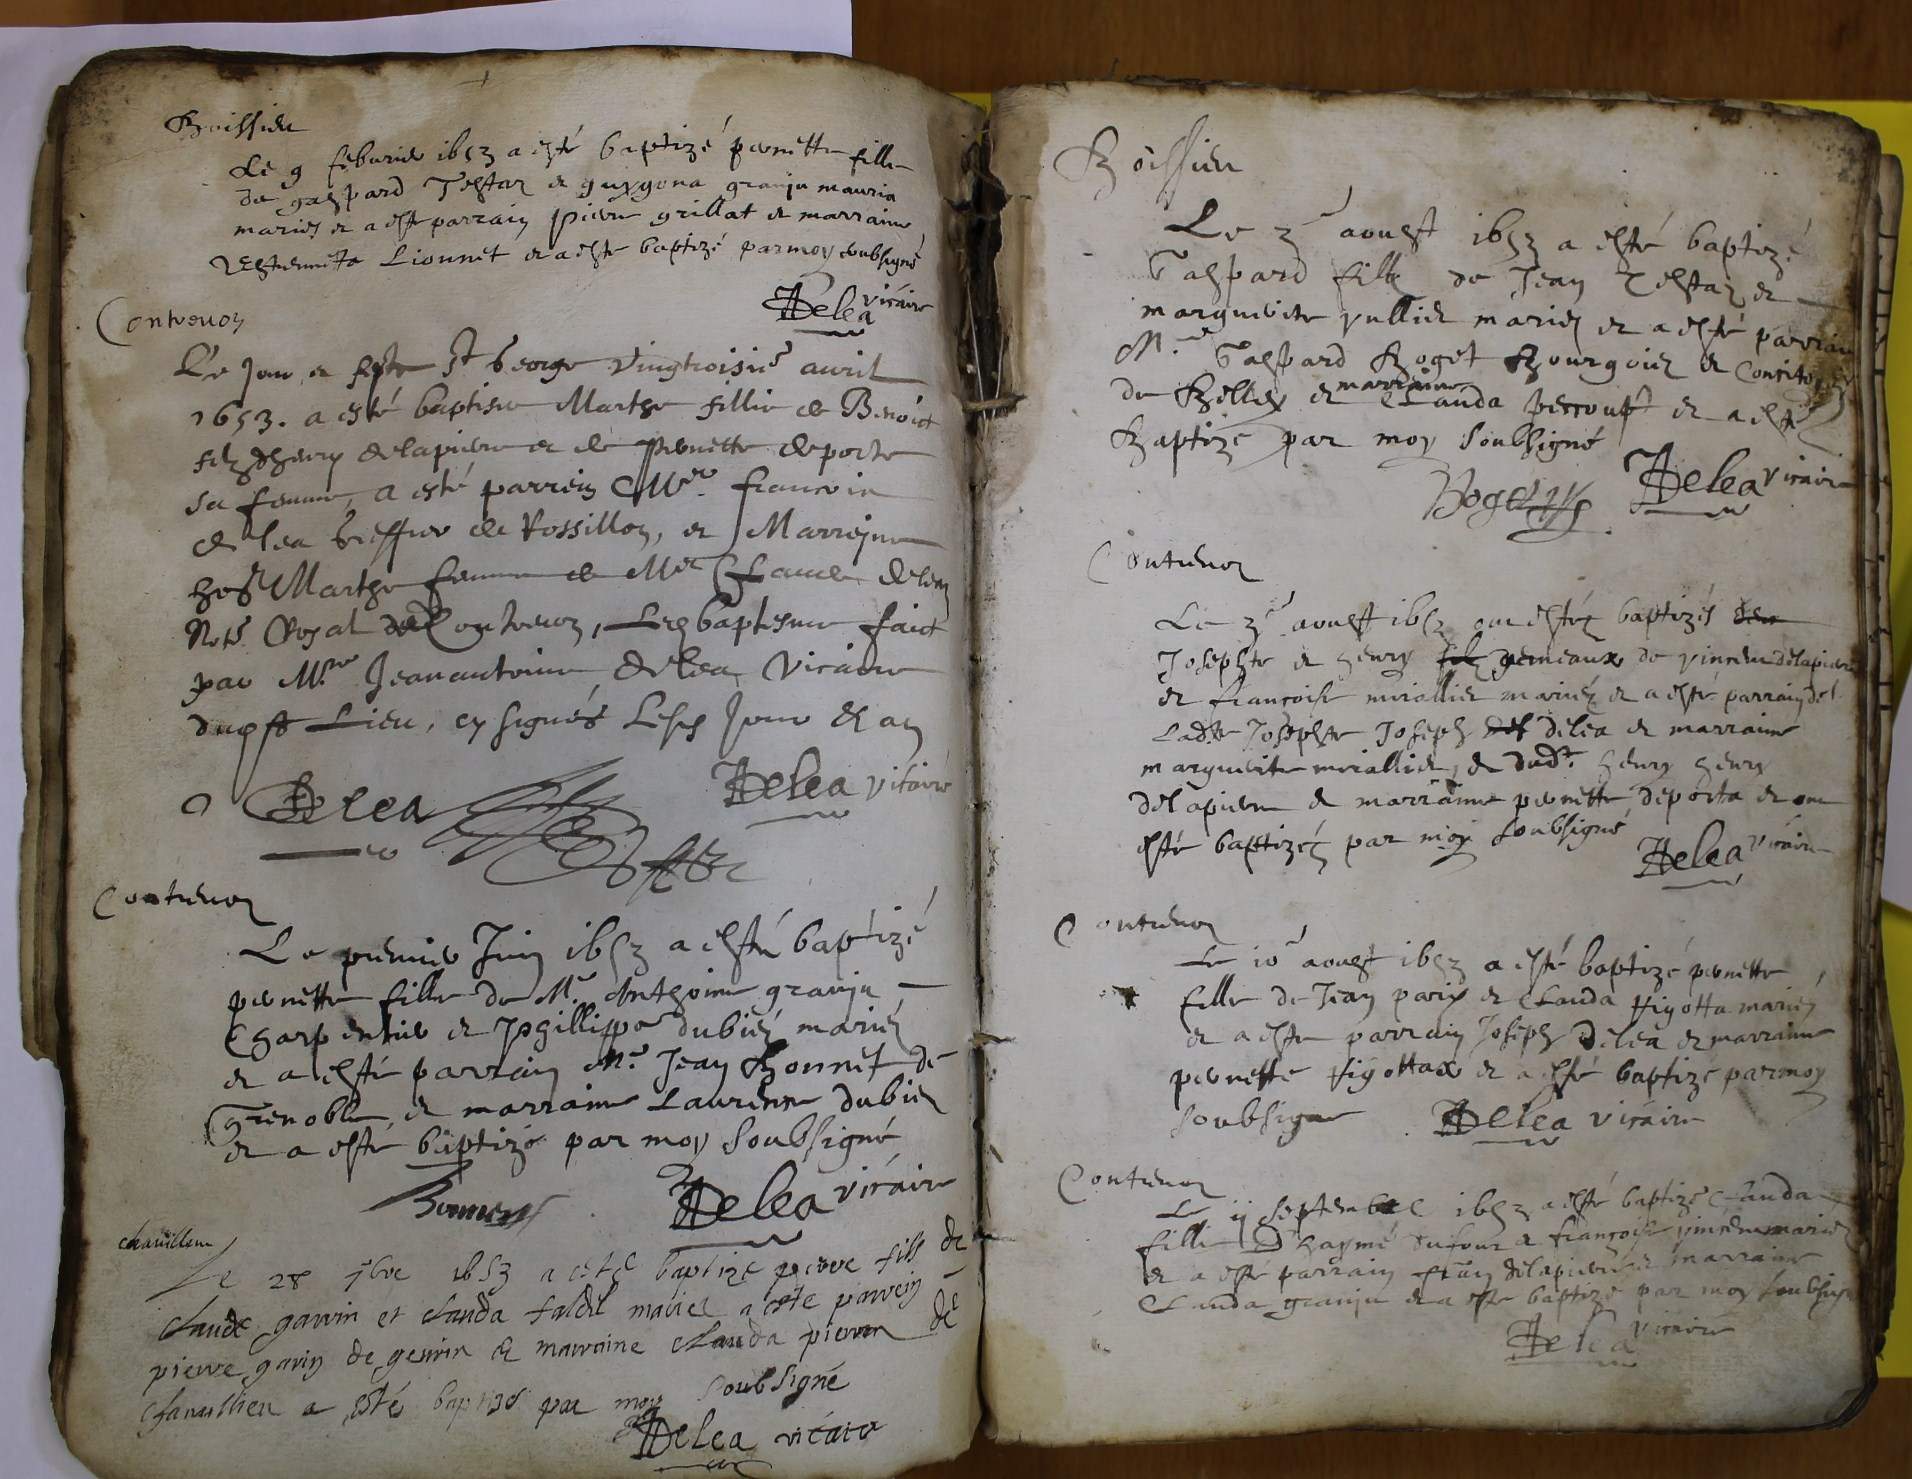 Boissieu
Le 9 feburier 1653 a esté baptizé pernette fille
de gaspard Testaz et guygona granju mauria
mariés et a esté parrain pierre grillat et marraine
Estiennetta Lionnet et a esté baptizé par moy soubsigné
Delea vicaire
Contrevoz
Le Jour et feste St George vingtroisie avril
1653. a esté baptisée Marthe fillie de Benoict
filz d'henry delapierre et de Pernette deporte
sa femme, a esté parrein Mre. francois
delea Greffier de Rossillon, et Marrejne
hoste Marthe femme de Mre Claude delea
Note. Royal de Contrevoz, Led baptesme faict
par Mre Jeanantoine Delea vicaire
dupst Lieu, cy signés Lesd Jour et an
Delea
Delea vicaire
Contrevoz
Le premier Juin 1653 a esté baptizé
pernette fille de Me Anthoine granju
Charpentier et Phillippa dubiez mariés
et a esté parrain Me. Jean Bonnet de
Grenoble et marraine Laurence dubiez
et a esté baptizé par moy soubsigné
Bonnet
Delea vicaire
chavillieu
Le 28 7bre 1653 a esté baptizé pierre fils de
claude gavin et clauda faldel mariez a esté parrein
pierre gavin de gevrin et marraine clauda pierre de
chavillieu a esté baptizé par moy soubsigné
Delea vicaire
Boissieu
Le 3e aoust 1653 a esté baptizé
Gaspard filz de Jean Testaz et
marguerite vullier mariez et a esté parrain
Me. Gaspard Boget Bourgoiz et Concitoyen
de Belley et marraine Clauda percoupt et a esté
Baptizé par moy soubsigné
Boget
Delea vicaire
Contrevoz
Le 3e aoust 1653 ont estéz baptizés
Josephte et henry gemeaux de vincent delapierre
et françoise mirallier mariéz et a esté parrain de
Ladte Josephte Joseph delea et marraine
marguerite mirallier, et dudt. henry henry
delapierre et marrainne pernette deporta et ont
esté baptizéz par moy soubsigné
Delea vicaire
Contrevoz
Le 10e aoust 1653 a esté baptizé pernette
fille de Jean parix et Clauda figotta mariéz
et a esté parrain Joseph Delea et marraine
pernette figottax et a esté baptizé par moy
soubsigne
Delea vicaire
Contrevoz
Le ii septembre 1653 a esté baptizé Clauda
fille D'haymé dufour et françoise vincent mariez
et a esté parrain delapierre et marraine
Clauda granju et a esté baptizé par moy soubsigné
Delea vicaire